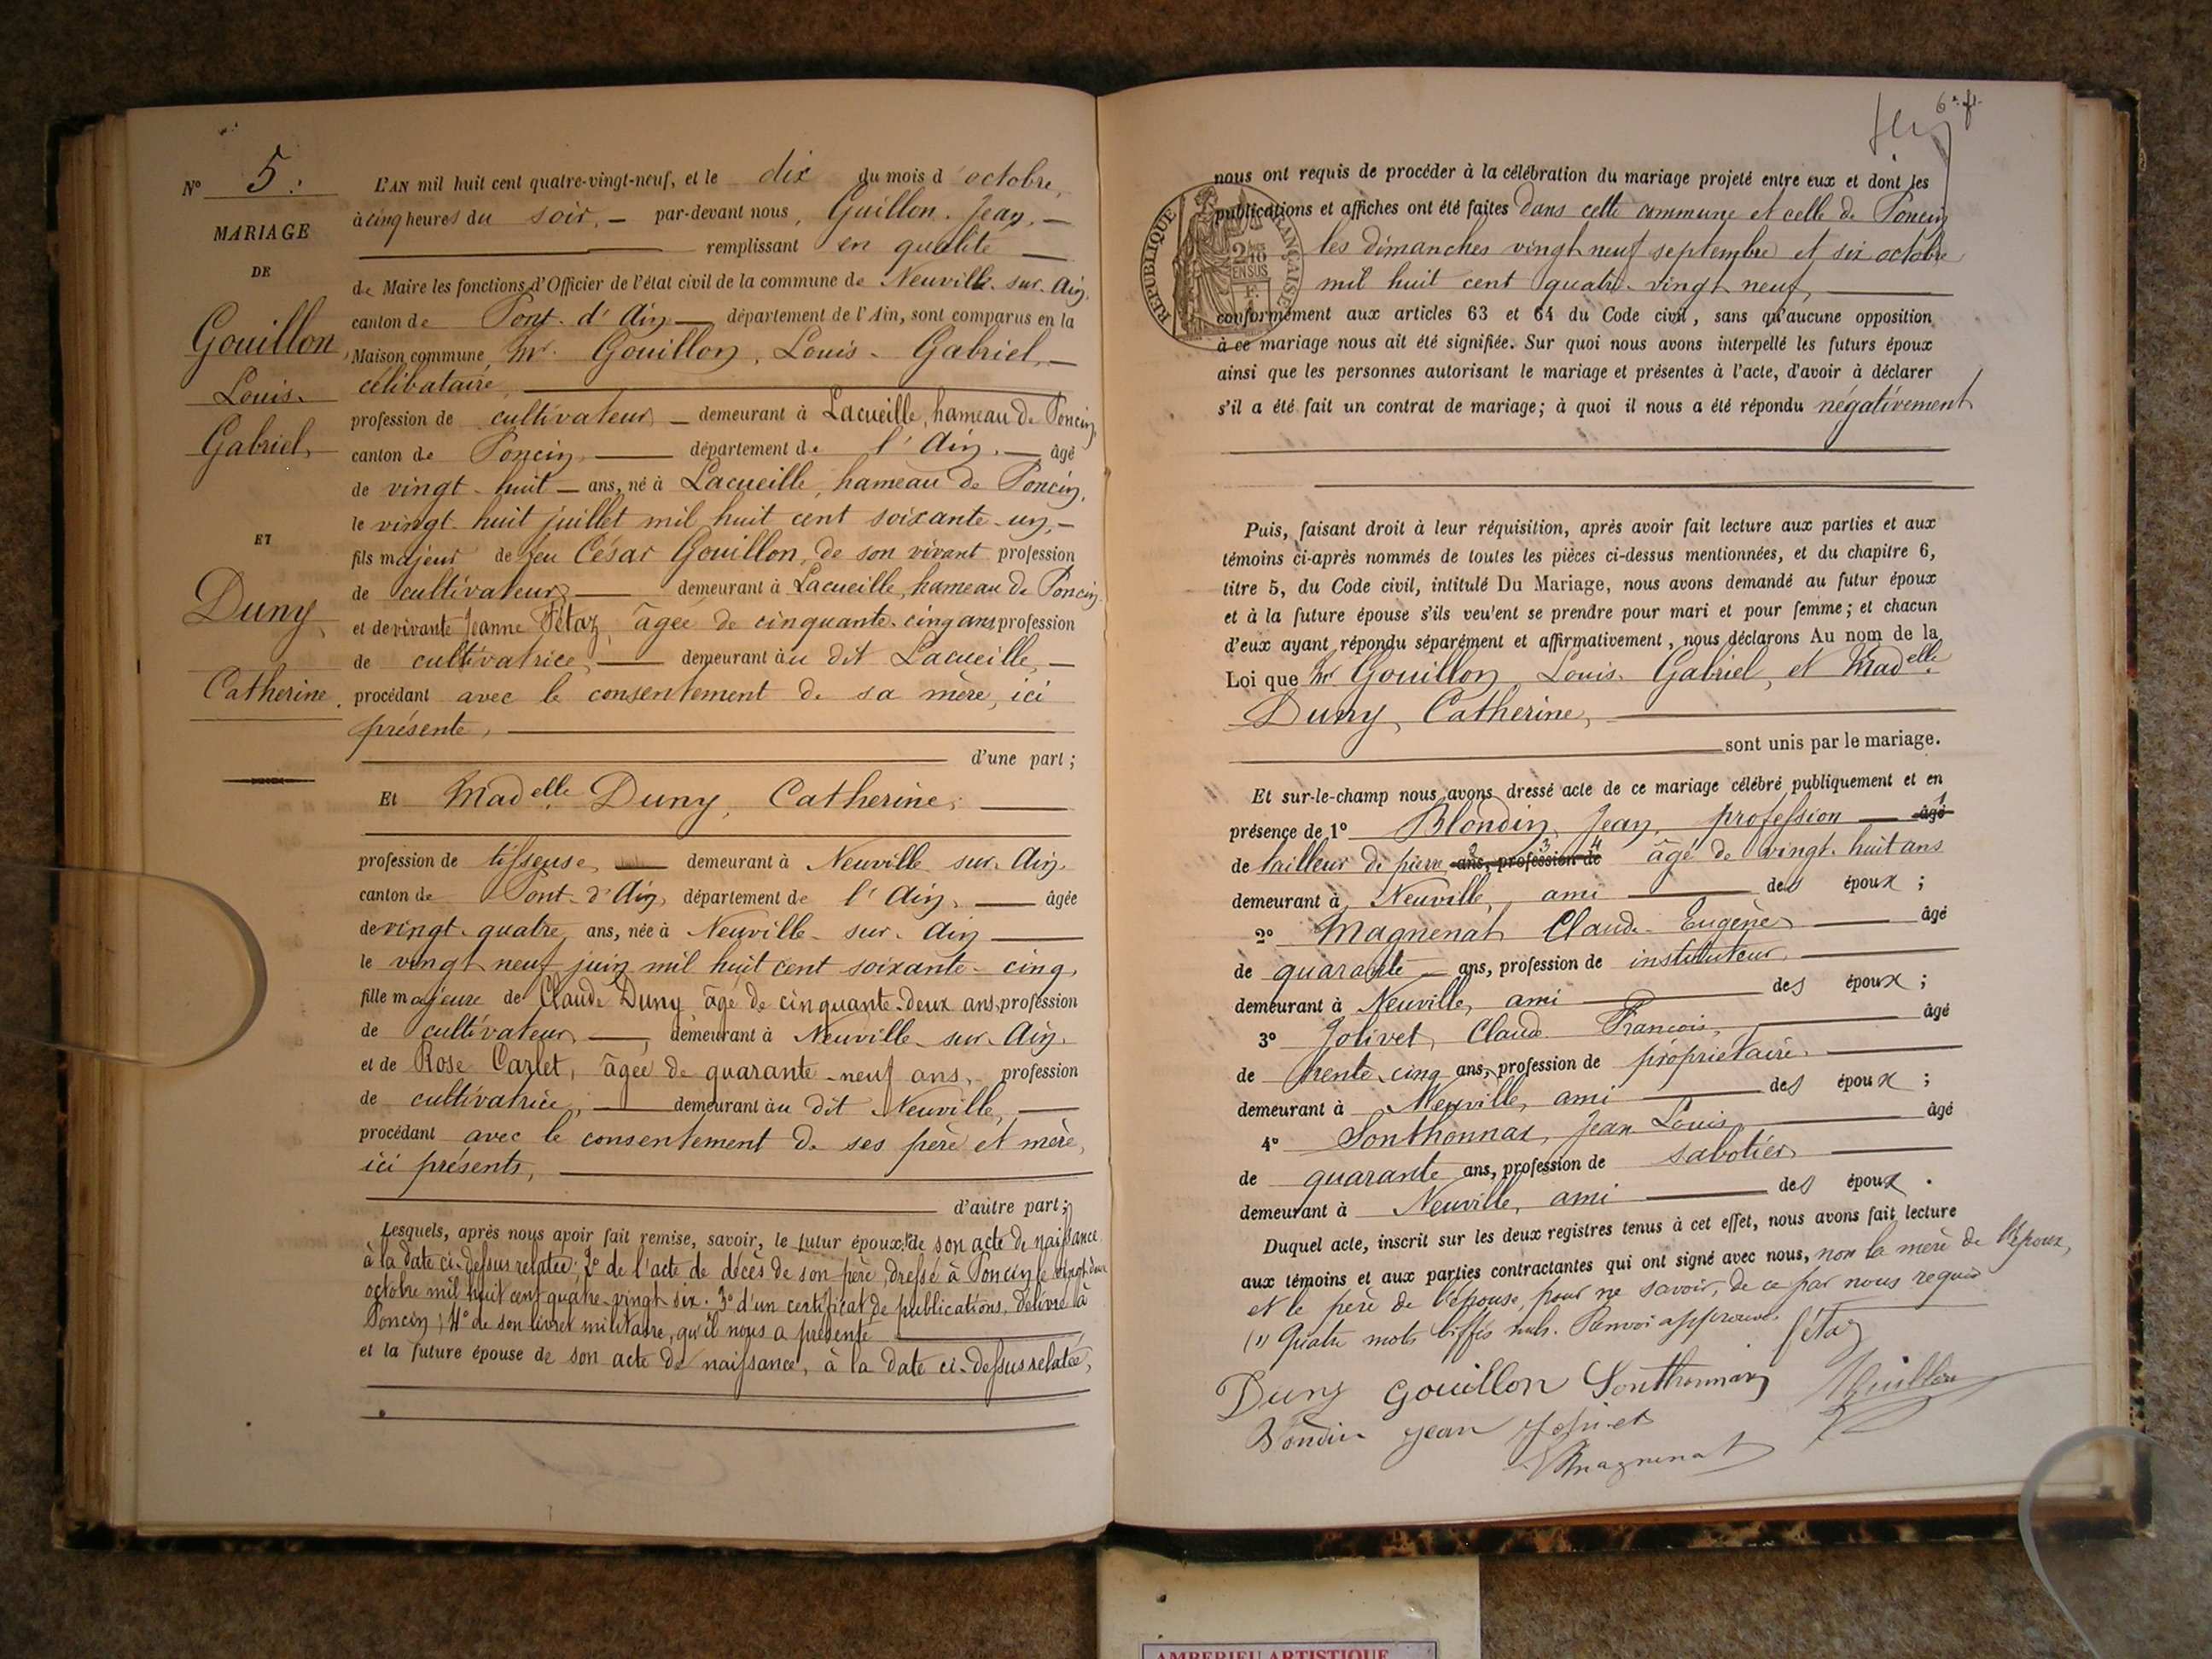 N° 5.
MARIAGE
DE
Gouillon,
Louis-
Gabriel,
ET
Duny,
Catherine.
L'AN mil huit cent quatre-vingt-neuf, et le dix du mois d'octobre,
à cinq heures du soir, — par-devant nous, Guillon, Jean, —
remplissant en qualité —
de Maire les fonctions d'Officier de l'état civil de la commune de Neuville-sur-Ain,
canton de Pont-d'Ain — département de l'Ain, sont comparus en la
Maison commune, Mr. Gouillon, Louis-Gabriel, —
célibataire,
profession de cultivateur, — demeurant à Lacueille, hameau de Poncin,
canton de Poncin, — département de l'Ain, — âgé
de vingt-huit — ans, né à Lacueille, hameau de Poncin,
le vingt-huit juillet mil huit cent soixante-un, —
fils majeur de feu César Gouillon, de son vivant profession
de cultivateur, — demeurant à Lacueille, hameau de Poncin,
et de vivante Jeanne Fétaz, âgée de cinquante-cinq ans, profession
de cultivatrice, — demeurant au dit Lacueille, —
procédant avec le consentement de sa mère, ici
présente,
d'une part;
Et Madelle Duny, Catherine,
profession de tisseuse, — demeurant à Neuville-sur-Ain,
canton de Pont-d'Ain, département de l'Ain, — âgée
de vingt-quatre ans, née à Neuville-sur-Ain —
le vingt neuf juin mil huit cent soixante-cinq,
fille majeure de Claude Duny âgé de cinquante-deux ans, profession
de cultivateur, —, demeurant à Neuville-sur-Ain,
et de Rose Carlet, âgée de quarante-neuf ans, profession
de cultivatrice, — demeurant au dit Neuville, —
procédant avec le consentement de ses père et mère,
ici présents,
d'autre part;
Lesquels, après nous avoir fait remise, savoir, le futur époux 1° de son acte de naissance
à la date ci-dessus relatée; 2° de l'acte de décès de son père, dressé à Poncin le vingt-deux
octobre mil huit cent quatre-vingt six. 3° d'un certificat de publications, délivré à
Poncin; 4° de son livret militaire, qu'il nous a présenté
et la future épouse de son acte de naissance, à la date ci-dessus relatée,
6e. f.
nous ont requis de procéder à la célébration du mariage projeté entre eux et dont les
publications et affiches ont été faites dans cette commune et celle de Poncin
les dimanches vingt neuf septembre et six octobre
mil huit cent quatre-vingt neuf,
RÉPUBLIQUE FRANÇAISE
2/10 EN SUS
conformément aux articles 63 et 64 du Code civil, sans qu'aucune opposition
à ce mariage nous ait été signifiée. Sur quoi nous avons interpellé les futurs époux
ainsi que les personnes autorisant le mariage et présentes à l'acte, d'avoir à déclarer
s'il a été fait un contrat de mariage; à quoi il nous a été répondu négativement
Puis, faisant droit à leur réquisition, après avoir fait lecture aux parties et aux
témoins ci-après nommés de toutes les pièces ci-dessus mentionnées, et du chapitre 6,
titre 5, du Code civil, intitulé Du Mariage, nous avons demandé au futur époux
et à la future épouse s'ils veulent se prendre pour mari et pour femme; et chacun
d'eux ayant répondu séparément et affirmativement, nous déclarons Au nom de la
Loi que Mr Gouillon, Louis-Gabriel, et Madelle
Duny, Catherine,
sont unis par le mariage.
Et sur-le-champ nous avons dressé acte de ce mariage célébré publiquement et en
présence de 1° Blondin, Jean, profession — âgé
de tailleur de pierre ans, profession de âgé de vingt-huit ans
demeurant à Neuville, ami — des époux;
2° Magnenat Claude-Eugène — âgé
de quarante — ans, profession de instituteur,
demeurant à Neuville, ami — des époux;
3° Jolivet, Claude François, — âgé
de trente-cinq ans, profession de propriétaire,
demeurant à Neuville, ami — des époux;
4° Sonthonnax, Jean Louis, — âgé
de quarante ans, profession de sabotier
demeurant à Neuville, ami — des époux.
Duquel acte, inscrit sur les deux registres tenus à cet effet, nous avons fait lecture
aux témoins et aux parties contractantes qui ont signé avec nous, non la mère de l'époux,
et le père de l'épouse, pour ne savoir, de ce par nous requis
(1) Quatre mots biffés nuls. Renvoi approuvé. Fétaz
Duny Gouillon Sonthonnax Guillon
Blondin Jean Jolivet
Magnenat
AMBERIEU ARTISTIQUE